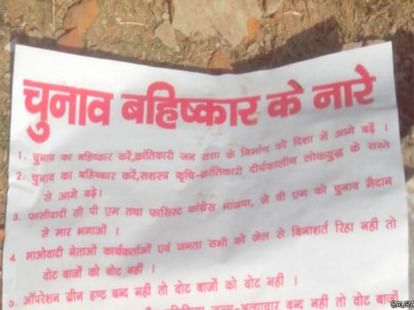 चुनाव बहिष्कार के नारे
1. चुनाव का बहिष्कार करें,क्रांतिकारी जन सत्ता के निर्माण की दिशा में आगे बढ़ें ।
2. चुनाव का बहिष्कार करें,सशस्त्र कृषि-क्रांतिकारी दीर्घकालीन लोकयुद्ध के रास्ते
से आगे बढ़े।
3. फासीवादी सी पी एम तथा फासिस्ट कांग्रेस भाजपा, जे वी एम को चुनाव मैदान
से मार भगाओं ।
4 माओवादी नेताओं कार्यकर्ताओं एवं जनता सभी को जेल से बिनाशर्त रिहा नहीं तो
वोट बाजों को वोट नहीं ।
5. ऑपरेशन ग्रीन हण्ट बन्द नहीं तो वोट बाजों को वोट नहीं ।
बन्द नहीं तो वोट बाजों